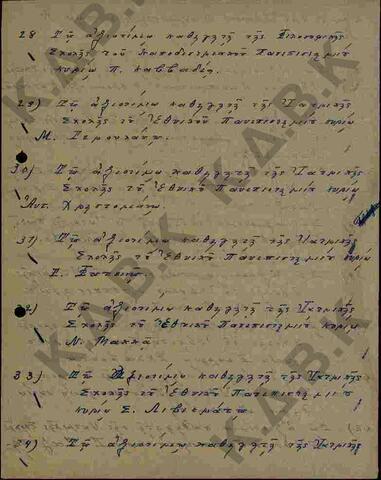 28 Τῷ ἀξιοτίμῳ καθηγητῇ τῆς
Σχολῆς τοῦ Καποδιστριακοῦ Πανεπιστημίου
κυρίῳ Π. Καββαδίᾳ.
29) Τῷ ἀξιοτίμῳ καθηγητῇ τῆς Ἰατρικῆς
Σχολῆς τοῦ Ἐθνικοῦ Πανεπιστημίου κυρίῳ
Μ. Γερουλάνῳ.
30) Τῷ ἀξιοτίμῳ καθηγητῇ τῆς Ἰατρικῆς
Σχολῆς τοῦ Ἐθνικοῦ Πανεπιστημίου κυρίῳ
Ἀντ. Χρηστομάνῳ.
31) Τῷ ἀξιοτίμῳ καθηγητῇ τῆς Ἰατρικῆς
Σχολῆς τοῦ Ἐθνικοῦ Πανεπιστημίου κυρίῳ
32) Τῷ ἀξιοτίμῳ καθηγητῇ τῆς Ἰατρικῆς
Σχολῆς τοῦ Ἐθνικοῦ Πανεπιστημίου κυρίῳ
Ν. Μακκᾷ
33) Τῷ Ἀξιοτίμῳ καθηγητῇ τῆς Ἰατρικῆς
Σχολῆς τοῦ Ἐθνικοῦ Πανεπιστημίου
κυρίῳ Σ. Λιβιεράτῳ
34) Τῷ ἀξιοτίμῳ καθηγητῇ τῆς Ἰατρικῆς
Κ.Δ.Β.Κ
Κ.Δ.Β.Κ
Κ.Δ.Β.Κ